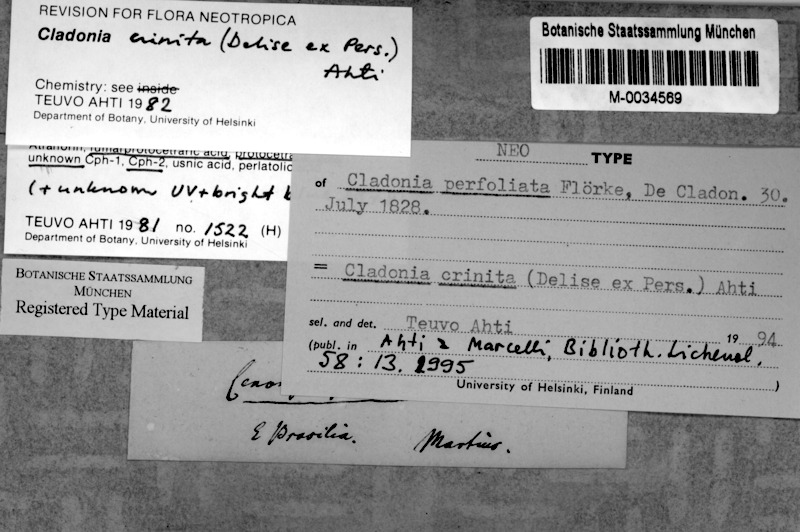 REVISION FOR FLORA NEOTROPICA
Cladonia crinita (Delise ex Pers.)
Ahti
Chemistry: see inside
TEUVO AHTI 1982
Department of Botany, University of Helsinki
Botanische Staatssammlung München
M-0034569
Atranorin, fumarprotocetraric acid,
unknown Cph-1, Cph-2, usnic acid,
(+ unknown UV+ bright
TEUVO AHTI 1981 no. 1522 (H)
Department of Botany, University of Helsinki
BOTANISCHE STAATSSAMMLUNG
MÜNCHEN
Registered Type Material
NEO TYPE
of Cladonia perfoliata Flörke, De Cladon. 30.
July 1828.
= Cladonia crinita (Delise ex Pers.) Ahti
sel. and det. Teuvo Ahti 1994
(publ. in Ahti & Marcelli, Biblioth. Lichenol.
58: 13. 1995 )
University of Helsinki, Finland
E Brasilia. Martius.